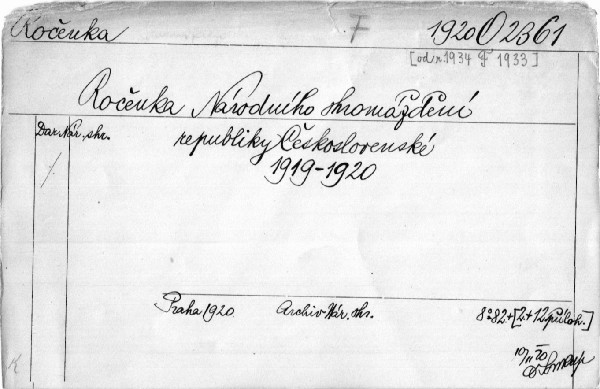 Ročenka F 1920 O 2361
[od r. 1934 F 1933]
Ročenka Národního shromáždění
Dar Nár. shr. republiky Československé
1919-1920
Praha 1920 Archiv Nár. shr. 8° 82+[2+12 příloh.]
10/II 20
K